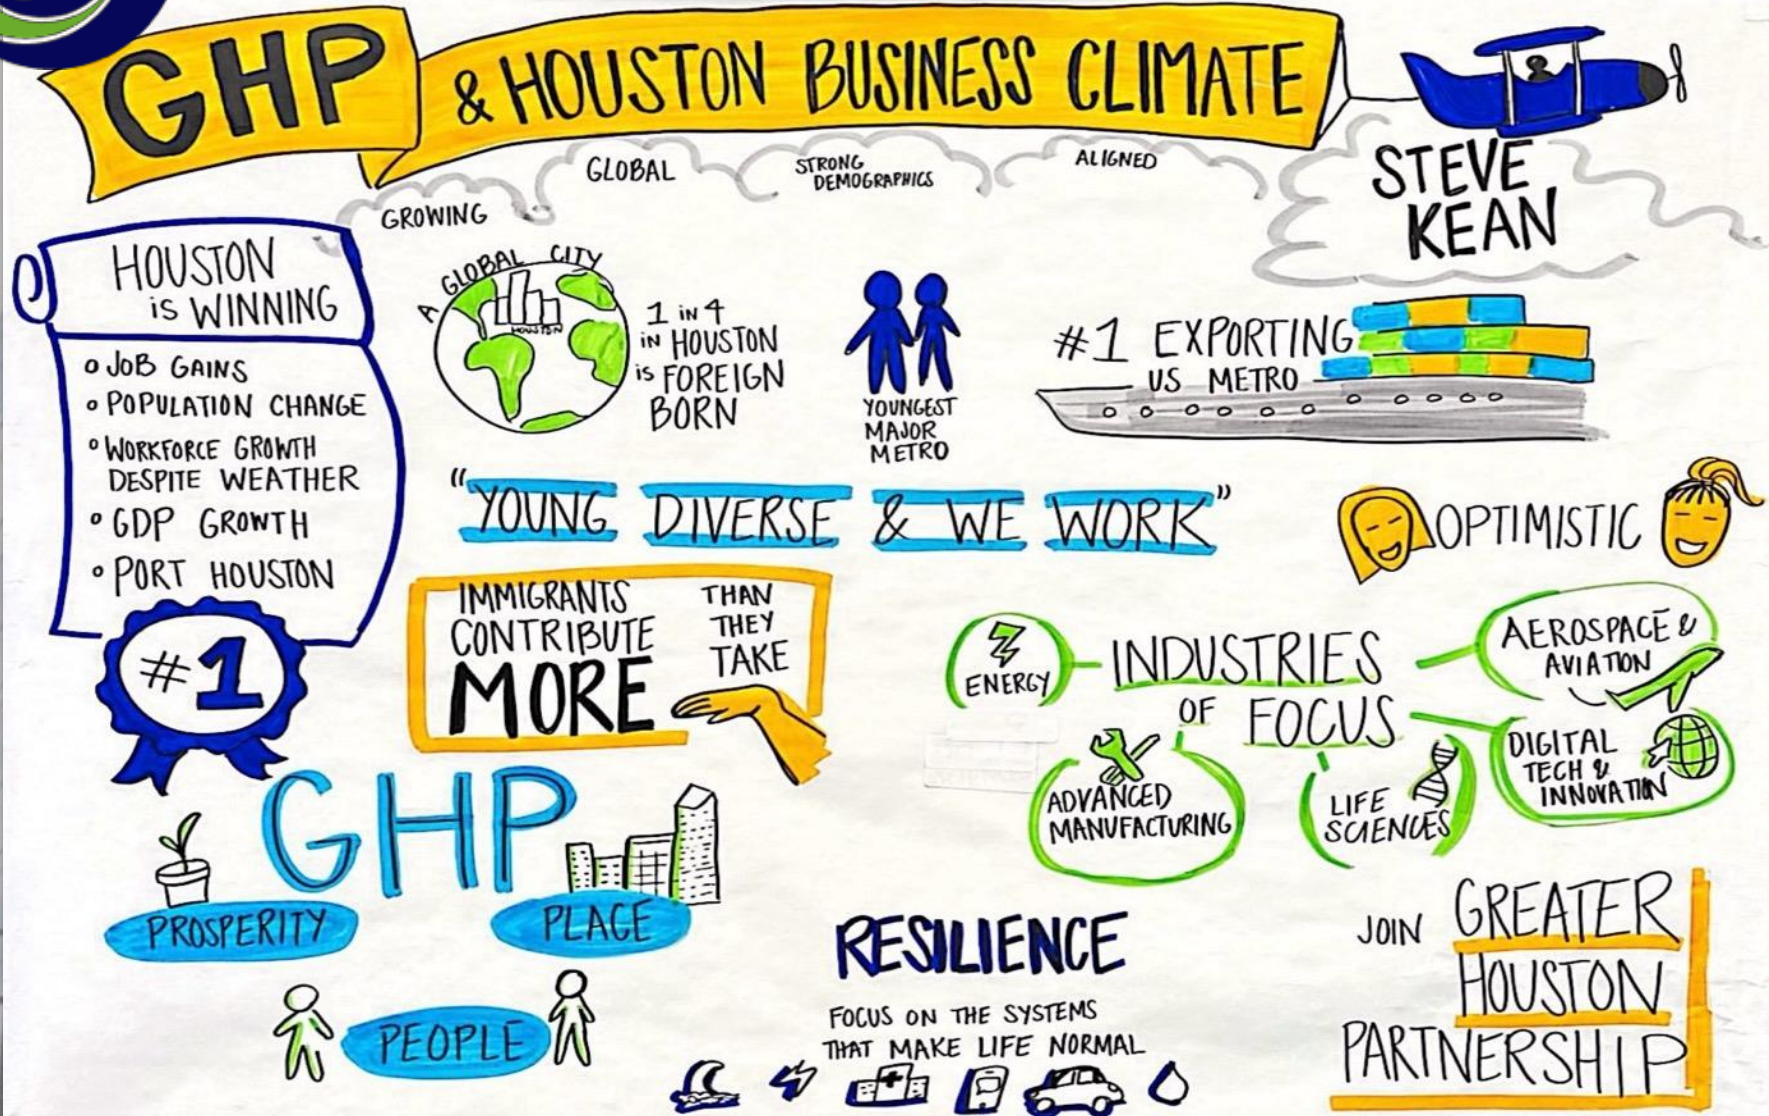 GHP
& HOUSTON BUSINESS CLIMATE
STEVE
KEAN
GROWING
GLOBAL
STRONG
DEMOGRAPHICS
ALIGNED
HOUSTON
is WINNING
JOB GAINS
POPULATION CHANGE
WORKFORCE GROWTH
DESPITE WEATHER
GDP GROWTH
PORT HOUSTON
#1
A GLOBAL CITY
HOUSTON
1 in 4
iN HOUSTON
is FOREIGN
BORN
YOUNGEST
MAJOR
METRO
#1 EXPORTING
US METRO
"YOUNG DIVERSE & WE WORK"
OPTIMISTIC
IMMIGRANTS
CONTRIBUTE
MORE
THAN
THEY
TAKE
INDUSTRIES
OF FOCUS
ENERGY
AEROSPACE &
AVIATION
ADVANCED
MANUFACTURING
LIFE
SCIENCES
DIGITAL
TECH &
INNOVATION
GHP
PROSPERITY
PLACE
PEOPLE
RESILIENCE
FOCUS ON THE SYSTEMS
THAT MAKE LIFE NORMAL
JOIN GREATER
HOUSTON
PARTNERSHIP